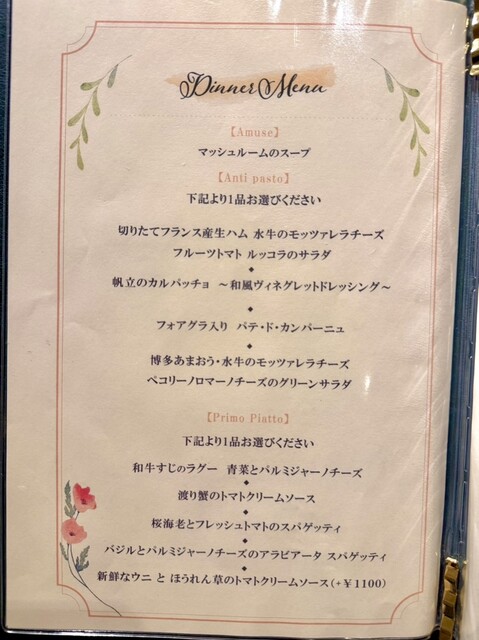 Dinner Menu
【Amuse】
マッシュルームのスープ
【Anti pasto】
下記より1品お選びください
切りたてフランス産生ハム 水牛のモッツァレラチーズ
フルーツトマト ルッコラのサラダ
◆
帆立のカルパッチョ ～和風ヴィネグレットドレッシング～
◆
フォアグラ入り パテ・ド・カンパーニュ
◆
博多あまおう・水牛のモッツァレラチーズ
ペコリーノロマーノチーズのグリーンサラダ
【Primo Piatto】
下記より1品お選びください
和牛すじのラグー 青菜とパルミジャーノチーズ
◆
渡り蟹のトマトクリームソース
◆
桜海老とフレッシュトマトのスパゲッティ
◆
バジルとパルミジャーノチーズのアラビアータ スパゲッティ
◆
新鮮なウニ と ほうれん草のトマトクリームソース(+¥1100)